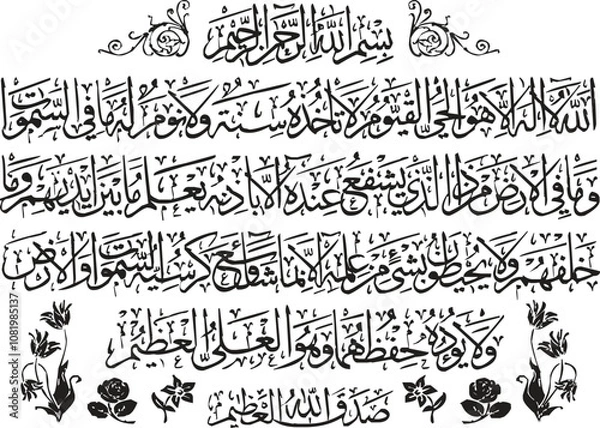 بسم الله الرحمن الرحيم
الله لا اله الا هو الحي القيوم لا تأخذه سنة ولا نوم له ما في السموات
وما في الارض من ذا الذي يشفع عنده الا باذنه يعلم ما بين ايديهم وما
خلفهم ولا يحيطون بشيء من علمه الا بما شاء وسع كرسيه السموات والارض
ولا يؤده حفظهما وهو العلي العظيم
صدق الله العظيم
Adobe Stock | #1081985137